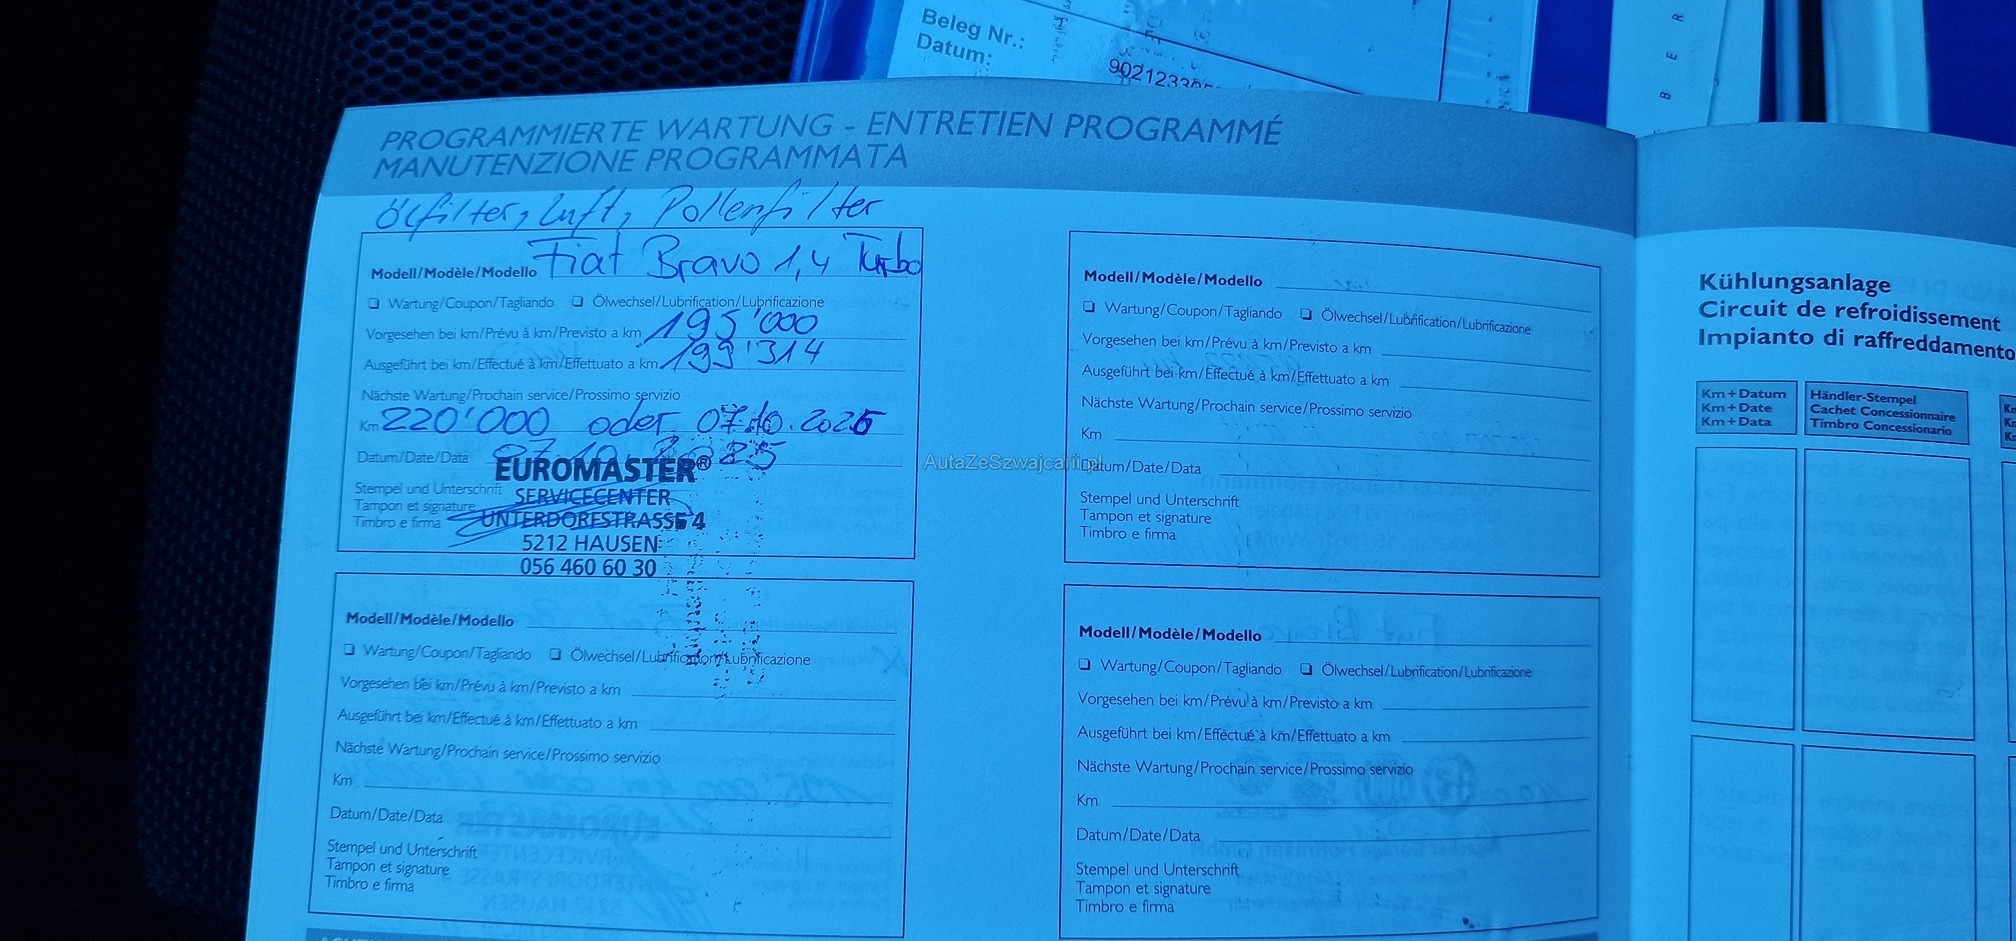 Beleg Nr.:
Datum:
PROGRAMMIERTE WARTUNG - ENTRETIEN PROGRAMMÉ
MANUTENZIONE PROGRAMMATA
Ölfilter, Luft, Pollenfilter
Modell/Modèle/Modello Fiat Bravo 1,4 Turbo
❏ Wartung/Coupon/Tagliando ❏ Ölwechsel/Lubrification/Lubrificazione
Vorgesehen bei km/Prévu à km/Previsto a km 195'000
Ausgeführt bei km/Effectué à km/Effettuato a km 199'314
Nächste Wartung/Prochain service/Prossimo servizio
Km 220'000 oder 07.10.2026
Datum/Date/Data 07.10.2025
EUROMASTER®
Stempel und Unterschrift
SERVICECENTER
Tampon et signature
UNTERDORFSTRASSE 4
Timbro e firma
5212 HAUSEN
056 460 60 30
Modell/Modèle/Modello
❏ Wartung/Coupon/Tagliando ❏ Ölwechsel/Lubrification/Lubrificazione
Vorgesehen bei km/Prévu à km/Previsto a km
Ausgeführt bei km/Effectué à km/Effettuato a km
Nächste Wartung/Prochain service/Prossimo servizio
Km
Datum/Date/Data
Stempel und Unterschrift
Tampon et signature
Timbro e firma
Modell/Modèle/Modello
❏ Wartung/Coupon/Tagliando ❏ Ölwechsel/Lubrification/Lubrificazione
Vorgesehen bei km/Prévu à km/Previsto a km
Ausgeführt bei km/Effectué à km/Effettuato a km
Nächste Wartung/Prochain service/Prossimo servizio
Km
AutaZeSzwajcarii.pl
Datum/Date/Data
Stempel und Unterschrift
Tampon et signature
Timbro e firma
Modell/Modèle/Modello
❏ Wartung/Coupon/Tagliando ❏ Ölwechsel/Lubrification/Lubrificazione
Vorgesehen bei km/Prévu à km/Previsto a km
Ausgeführt bei km/Effectué à km/Effettuato a km
Nächste Wartung/Prochain service/Prossimo servizio
Km
Datum/Date/Data
Stempel und Unterschrift
Tampon et signature
Timbro e firma
Kühlungsanlage
Circuit de refroidissement
Impianto di raffreddamento
Km + Datum
Km + Date
Km + Data
Händler-Stempel
Cachet Concessionnaire
Timbro Concessionario